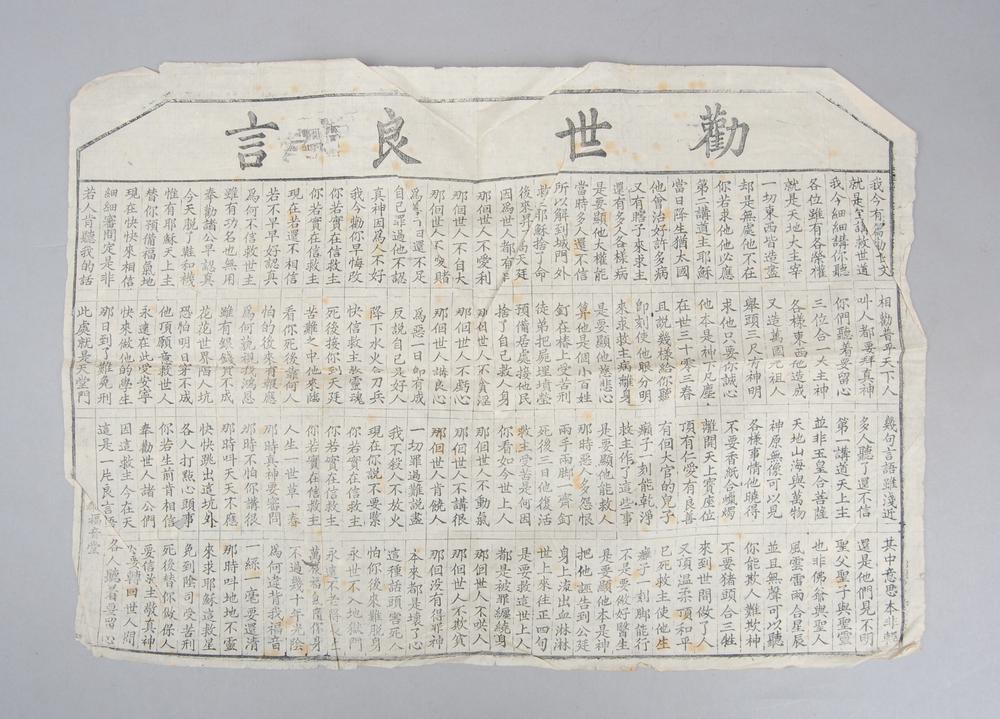 勸世良言
我今有篇勸世文 相勸普平天下人 幾句言語雖淺近 其中意思本非輕
就是宣講救世道 叫人都要拜真神 多人聽了還不信 還是他們見不明
我今細細講你聽 你們聽着要留心 第一講道天上主 聖父聖子與聖靈
各位雖有各榮權 三位合一大主神 並非玉皇合菩薩 也非佛爺與聖人
就是天地大主宰 各樣東西他造成 天地山海與萬物 風雲雷雨合星辰
一切東西皆造盡 又造萬國元祖人 神原無像可以見 並且無聲可以聽
却是無處他不在 舉頭三尺有神明 各樣事情他曉得 你能欺人難欺神
你若求他他必應 求他只要你誠心 不要香紙合蠟燭 不要猪頭合三牲
第二講道主耶穌 他本是神下凡塵 離開天上寶座位 來到世間做了人
當日降生猶太國 在世三十零三春 頂有仁愛有良善 又頂溫柔頂和平
他會治好許多病 且說幾樣給你聽 有個大官的兒子 已死救主使他生
又有瞎子來求主 即刻使他眼分明 癩子一刻能乾淨 癱子一刻脚能行
還有多人各樣病 來求救主病離身 救主作了這些事 不是要做好醫生
是要顯他大權能 是要顯他慈悲心 是要顯他能救人 是要顯他本是神
當時多人還不信 算他是個小百姓 那時惡人多怨恨 把他誣告到公廷
所以解到城門外 釘在樁上受苦刑 兩手兩脚一齊釘 身上流出血淋淋
救主耶穌捨了命 徒弟把屍埋墳塋 死後三日他復活 世上來往正四旬
後來昇了為天廷 預備居處接他民 救主受苦是何因 是要救這世上人
因為世人都有罪 捨了自己救人身 你看如今世上人 都是被罪纏繞身
那個世人不愛利 那個世人不貪淫 那個世人不動氣 那個世人不哄人
那個世人不自大 那個世人不虧心 那個世人不講很 那個世人不欺貧
那個世人不哭賭 那個世人講良心 那個世人肯饒人 那個沒有得罪神
為善一日還不足 為惡一日即有成 一切罪過難說盡 本來都是壞了心
自己罪過他不認 反說自己是好人 我不殺人不放火 這種話頭嚇死人
真神因為人不好 降下水火合刀兵 現在你說不要緊 怕你後來難脫身
我今勸你早悔改 快信救主救靈魂 你若實在信救主 永世不下地獄門
你若實在信救主 死後接你到天廷 你若實在信救主 永遠不老得長生
你若實在信救主 苦難之中他來臨 你若實在信救主 萬福身
現在若還不相信 看你死後靠何人 人生一世草一春 不過幾十年光陰
若不早早好認真 怕的後來有報應 那時真神要審問 為何違背我福音
為何不信救世主 為何藐視我鴻恩 那時不怕你講很 一絲一毫要還清
雖有功名也無用 雖有銀錢買不成 那時叫天天不應 那時叫地地不靈
奉勸諸公早認真 花花世界陷人坑 快快跳出這坑外 來求耶穌這救星
今天脫了難和禍 恐怕明日穿不成 各人打點心頭事 免到陰司受苦刑
惟有耶穌天上主 他頂願意救世人 你若生前肯相信 死後替你做保人
替你預備福氣地 永遠在此受安寧 奉勸世人諸公們 愛信主敬真神
現在快快來相信 快來做他的學生 因這救主今在天 要轉回世人間
細細審問定是非 那日到了難免刑 這是一片良言語 各人聽着要留心
若人肯聽我的話 此處就是天堂門 福音堂